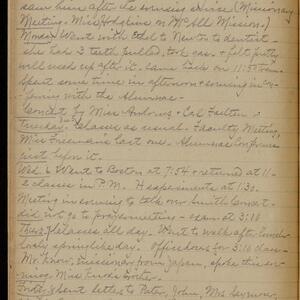 saw him after the morning service (Missionary
Meeting. Miss Hodgkins on McAll Mission.)
Mon. 4 Went with Ethel to Newton to dentist –
she had 3 teeth pulled, took gas & felt pretty
well used up after it. Came back on 11:50 train.
Spent some time in afternoon & evening in
with the Alumnae –
Concert by Miss Andrews & Carl Faelten –
Tuesday 5 Classes as usual – Faculty Meeting,
Miss Freeman's last one. Alumnae Conference
just before it.
Wed. 6 Went to Boston at 7:54 & returned at 11 –
2 classes in P.M. H experiments at 1:30.
Meeting in evening to talk over Smith
did not go to prayer meeting – exam at 3:10
Thurs. 7 Classes all day. Went to walk after lunch –
lovely springlike day. Office hour for 3:10 class –
Mr. Knox, Missionary from Japan, spoke this eve-
ning, Miss Knox's brother.
Frid. 8 Sent letters to Pater, John, Mrs. Seymour,